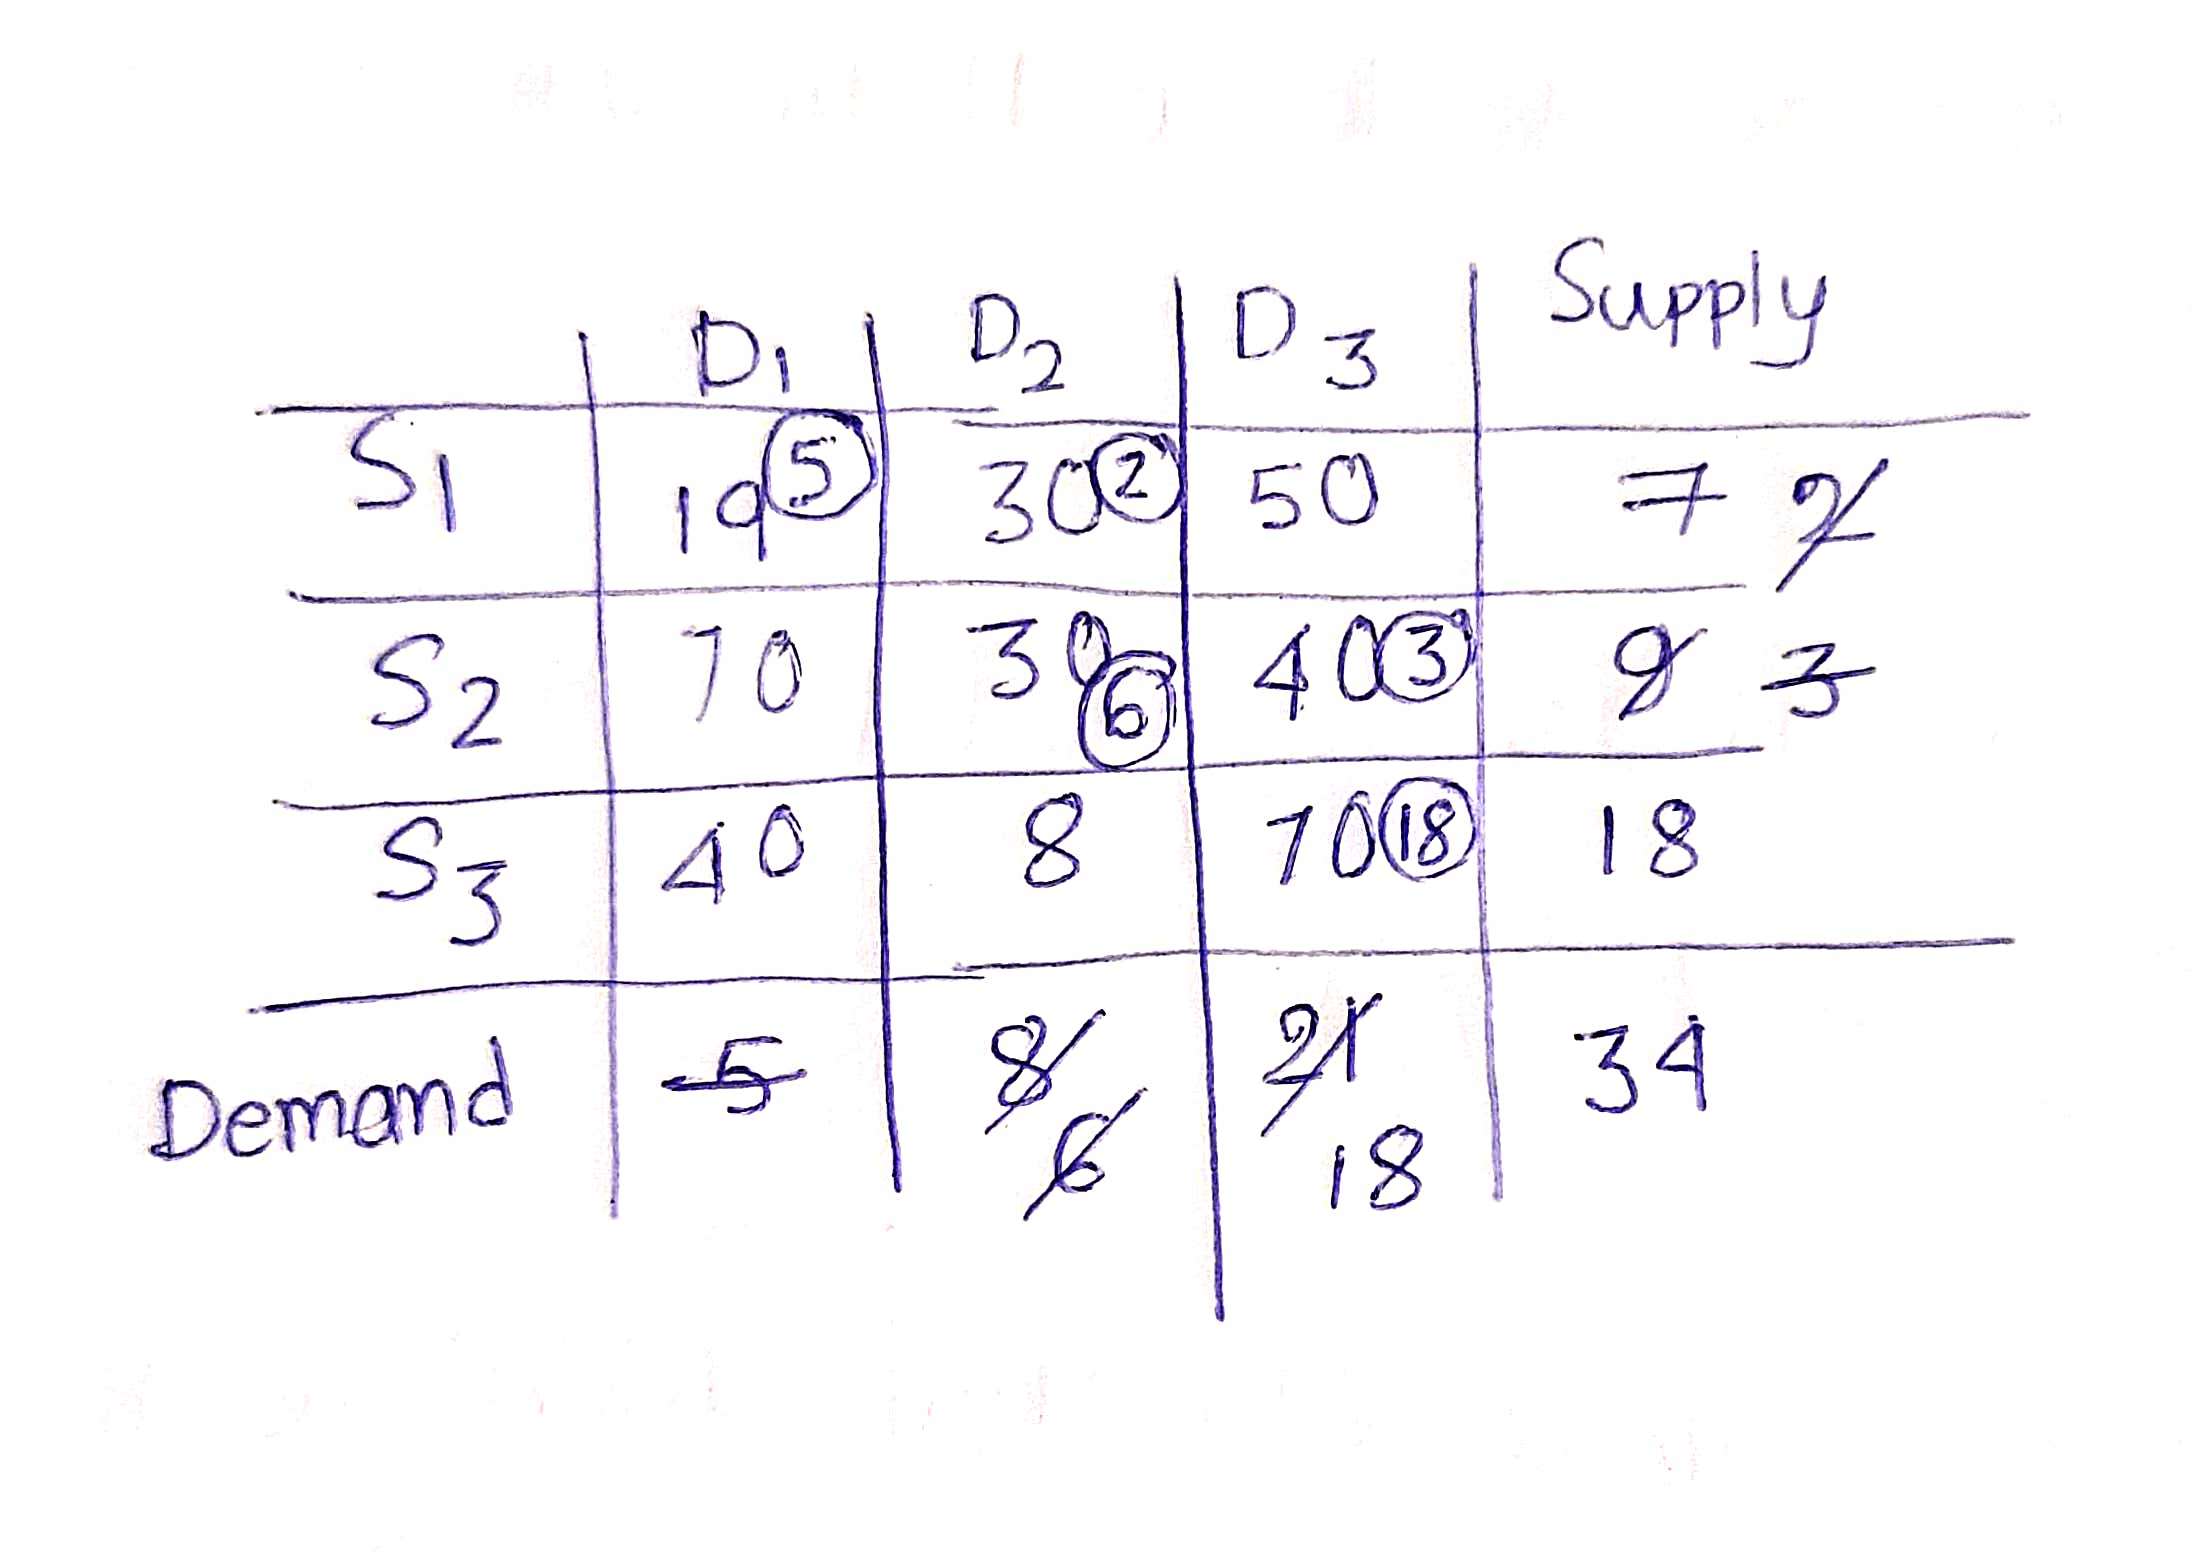 D1 D2 D3 Supply
S1 19 5 30 2 50 7 2
S2 70 30 6 40 3 9 3
S3 40 8 70 18 18
Demand 5 8 6 21 18 34